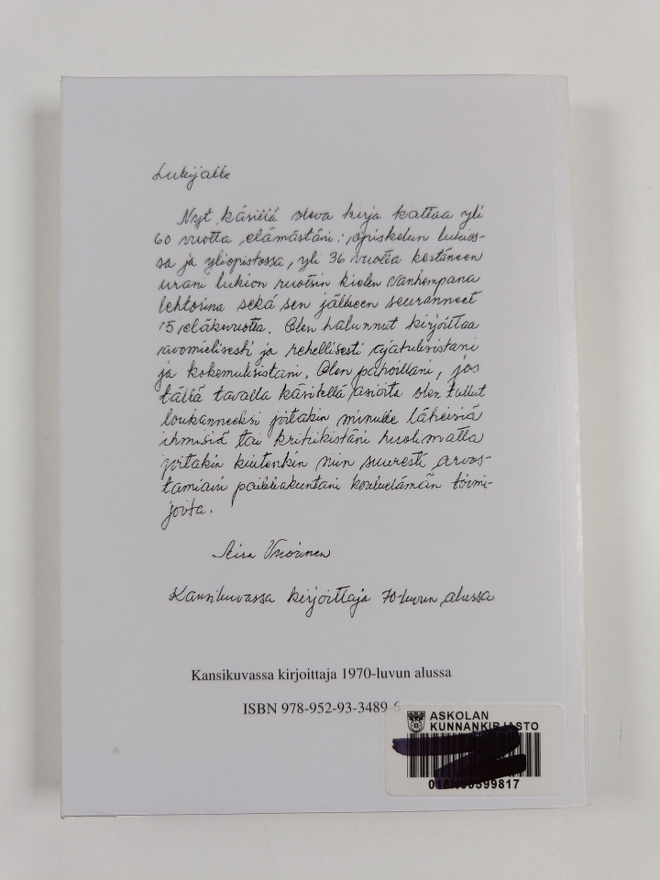 Lukijalle
Nyt käsillä oleva kirja kattaa yli
60 vuotta elämästäni: opiskelun lukios-
sa ja yliopistossa, yli 36 vuotta kestäneen
urani lukion ruotsin kielen vanhempana
lehtorina sekä sen jälkeen seuranneet
15 eläkevuotta. Olen halunnut kirjoittaa
avomielisesti ja rehellisesti ajatuksistani
ja kokemuksistani. Olen pahoillani, jos
tällä tavalla käsitellä asioita olen tullut
loukanneeksi joitakin minulle läheisiä
ihmisiä tai kritiikistäni huolimatta
joitakin kuitenkin niin suuresti arvos-
tamiani paikkakuntani kouluelämän toimi-
joita.
Vuorinen
Kansikuvassa kirjoittaja 70-luvun alussa
Kansikuvassa kirjoittaja 1970-luvun alussa
ISBN 978-952-93-3489-6
ASKOLAN
KUNNANKIRJASTO